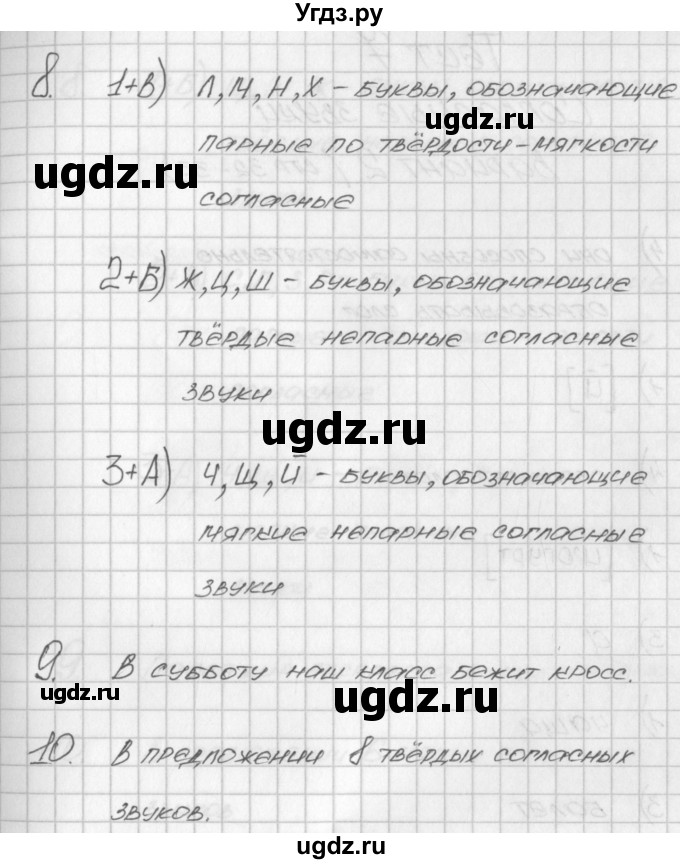 Угдз.ру
8. 1+В) Л, М, Н, Х - буквы, обозначающие
ugdz.ru
парные по твёрдости-мягкости
ugdz.ru
согласные
2+Б) Ж, Ц, Ш - буквы, обозначающие
твёрдые непарные согласные
звуки
ugdz.ru
3+А) Ч, Щ, Й - буквы, обозначающие
мягкие непарные согласные
звуки
9. В субботу наш класс бежит кросс.
ugdz.ru
ugdz.ru
10. В предложении 8 твёрдых согласных
звуков.
ugdz.ru
ugdz.ru